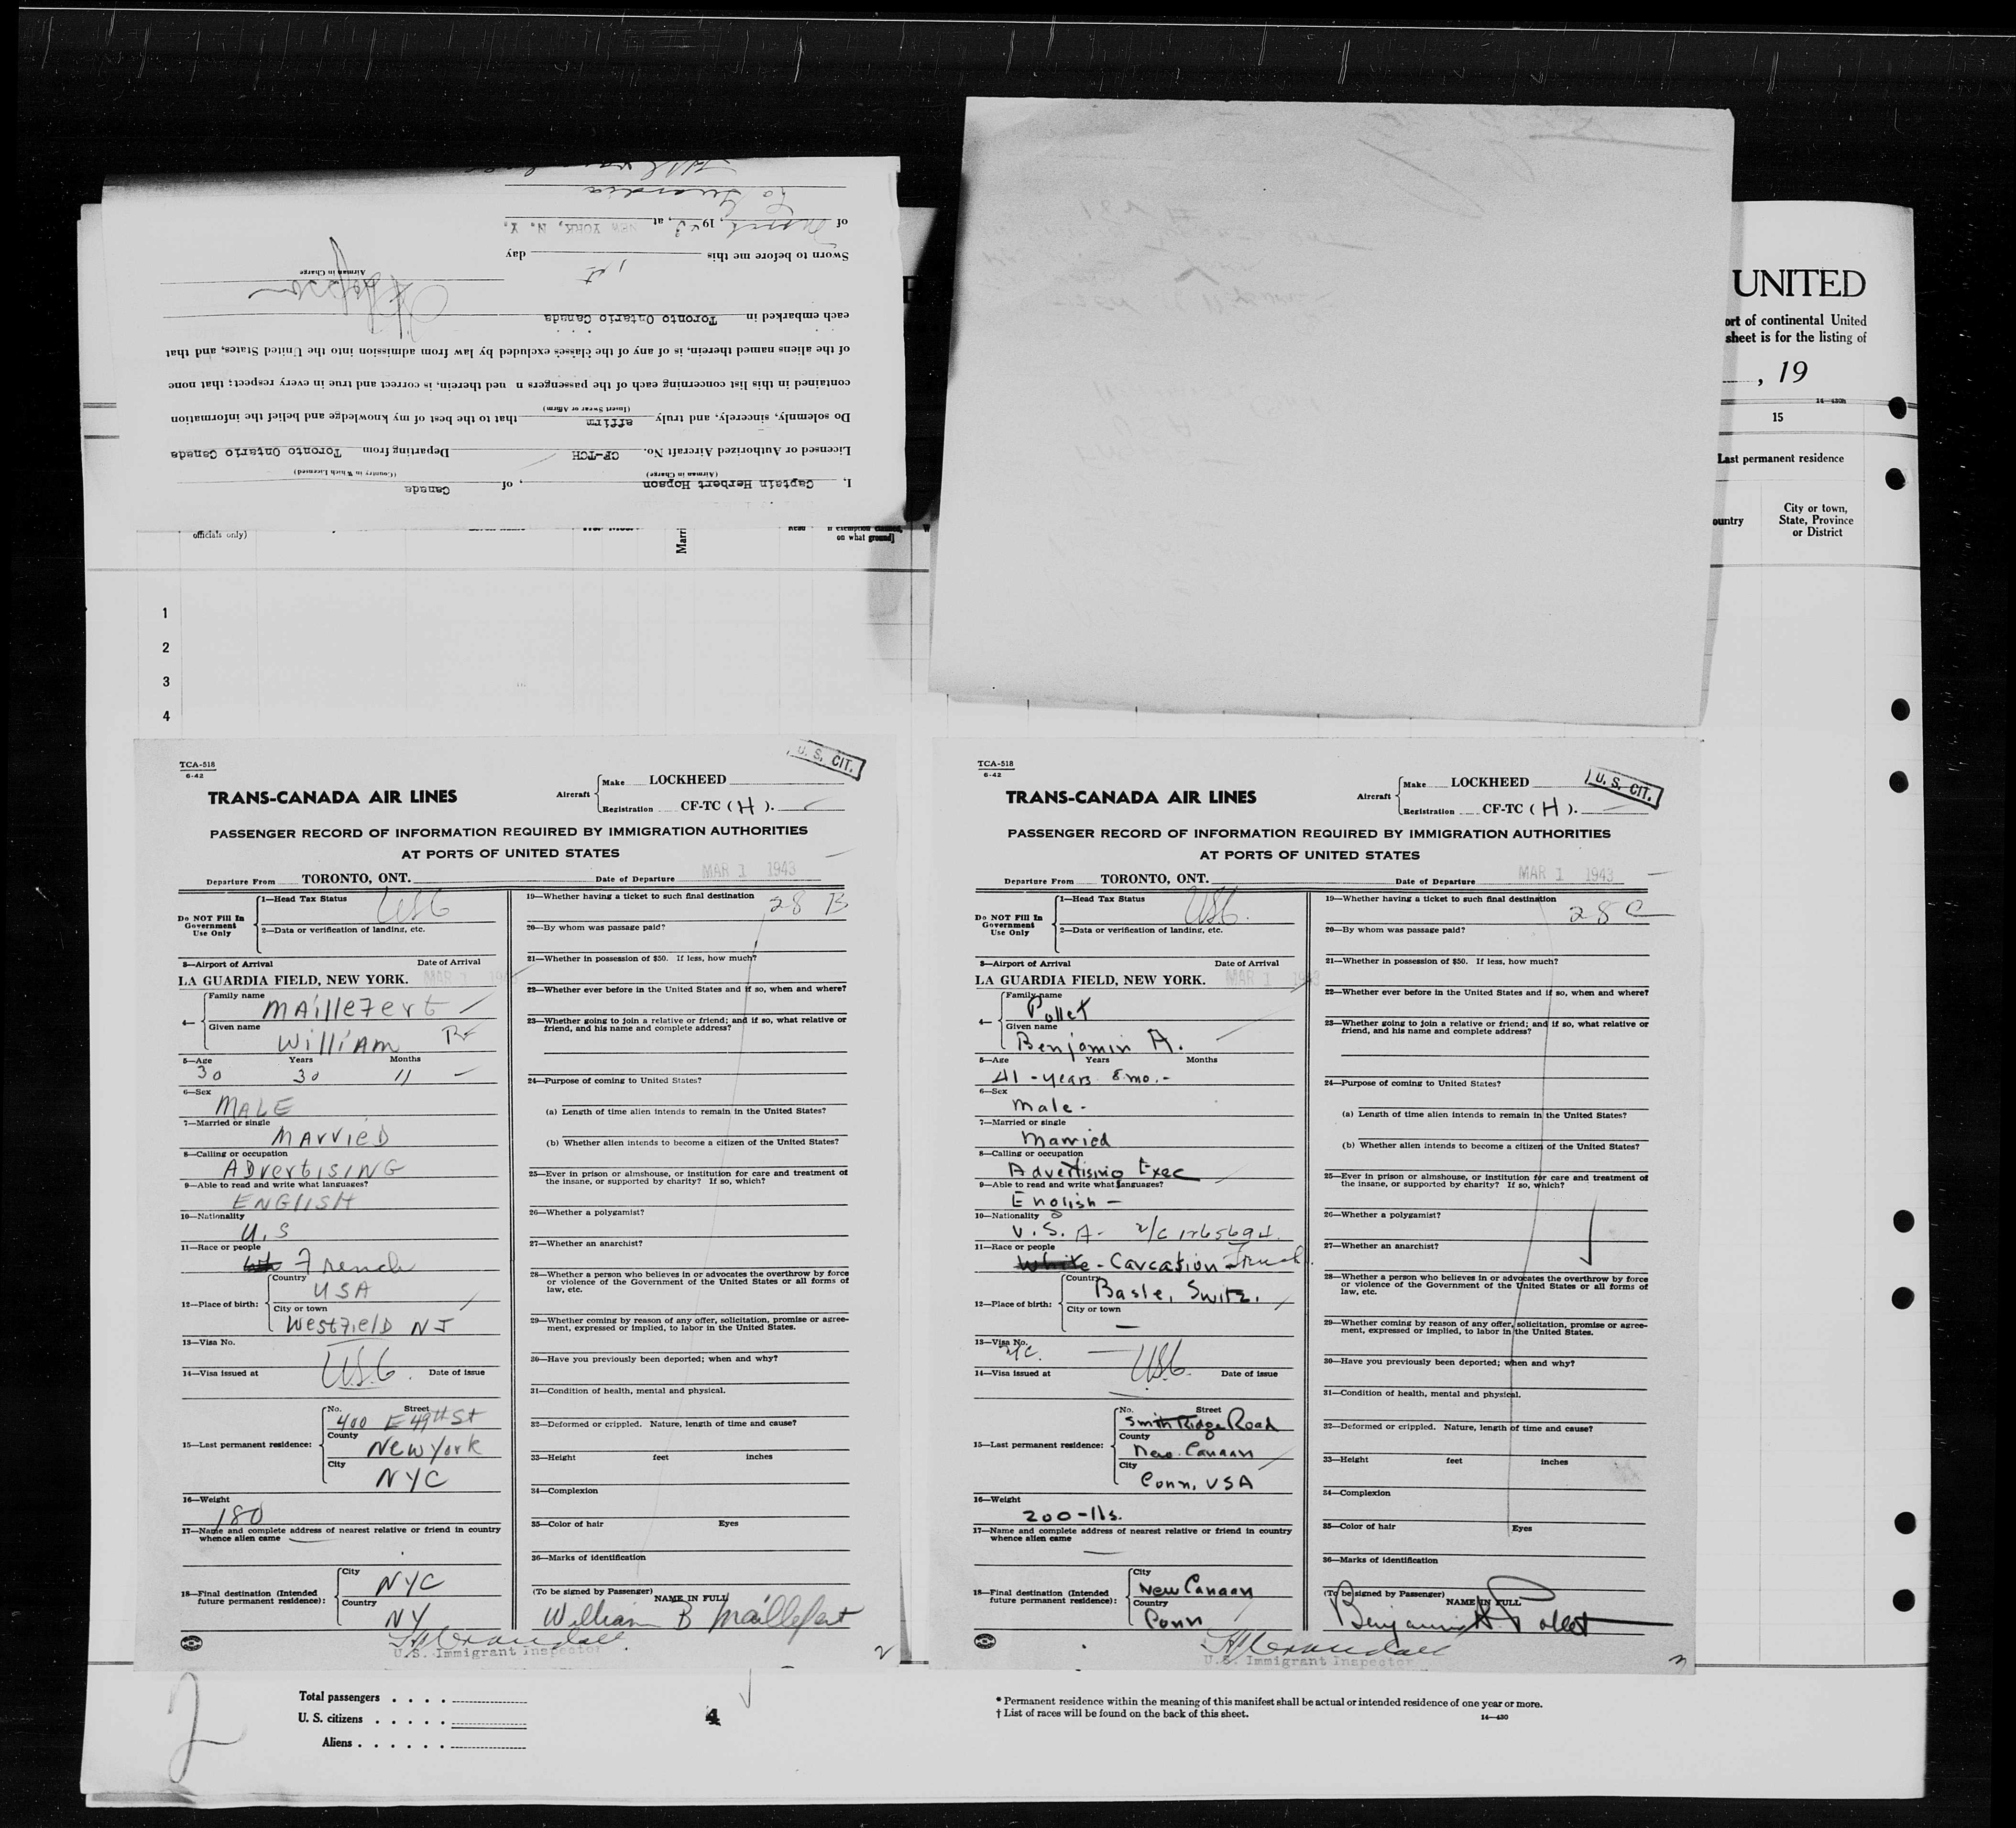 I, Captain Herbert Hopson, of Canada
(Airman in Charge) (Country in Which Licensed)
Licensed or Authorized Aircraft No. CF-TCH Departing from Toronto Ontario Canada
Do solemnly, sincerely, and truly affirm that to the best of my knowledge and belief the information
(Insert Swear or Affirm)
contained in this list concerning each of the passengers n ued therein, is correct and true in every respect; that none
of the aliens named therein, is of any of the classes excluded by law from admission into the United States, and that
each embarked in Toronto Ontario Canada
Airman in Charge
Sworn to before me this 1st day
of March, 1943, at NEW YORK, N. Y.
La Guardia
UNITED
ort of continental United
sheet is for the listing of
, 19
14—430a
15
Last permanent residence
ountry
City or town,
State, Province
or District
officials only)
Marri
Read
if exemption claimed,
on what ground]
1
2
3
4
TCA-518
6-42
U. S. CIT.
TRANS-CANADA AIR LINES
Aircraft
Make LOCKHEED
Registration CF-TC (H).
PASSENGER RECORD OF INFORMATION REQUIRED BY IMMIGRATION AUTHORITIES
AT PORTS OF UNITED STATES
Departure From TORONTO, ONT. Date of Departure MAR 1 1943
Do NOT Fill In
Government
Use Only
1—Head Tax Status USC
2—Data or verification of landing, etc.
3—Airport of Arrival Date of Arrival
LA GUARDIA FIELD, NEW YORK. MAR 1 19
4—
Family name MAillefert
Given name William
5—Age Years Months
30 30 11
6—Sex
MALE
7—Married or single
MArriED
8—Calling or occupation
ADvertisiNG
9—Able to read and write what languages?
ENGlISH
10—Nationality
U.S
11—Race or people
French
12—Place of birth:
Country
USA
City or town
Westfield NJ
13—Visa No.
USC.
14—Visa issued at Date of issue
15—Last permanent residence:
No. Street
400 E 49th St
County
New York
City
NYC
16—Weight
180
17—Name and complete address of nearest relative or friend in country
whence alien came
18—Final destination (Intended
future permanent residence):
City
NYC
Country
NY
19—Whether having a ticket to such final destination 28 B
20—By whom was passage paid?
21—Whether in possession of $50. If less, how much?
22—Whether ever before in the United States and if so, when and where?
23—Whether going to join a relative or friend; and if so, what relative or
friend, and his name and complete address?
24—Purpose of coming to United States?
(a) Length of time alien intends to remain in the United States?
(b) Whether alien intends to become a citizen of the United States?
25—Ever in prison or almshouse, or institution for care and treatment of
the insane, or supported by charity? If so, which?
26—Whether a polygamist?
27—Whether an anarchist?
28—Whether a person who believes in or advocates the overthrow by force
or violence of the Government of the United States or all forms of
law, etc.
29—Whether coming by reason of any offer, solicitation, promise or agree-
ment, expressed or implied, to labor in the United States.
30—Have you previously been deported; when and why?
31—Condition of health, mental and physical.
32—Deformed or crippled. Nature, length of time and cause?
33—Height feet inches
34—Complexion
35—Color of hair Eyes
36—Marks of identification
(To be signed by Passenger)
NAME IN FULL
William B Maillefert
H Crandall
U.S. Immigrant Inspector
2
TCA-518
6-42
U. S. CIT.
TRANS-CANADA AIR LINES
Aircraft
Make LOCKHEED
Registration CF-TC (H).
PASSENGER RECORD OF INFORMATION REQUIRED BY IMMIGRATION AUTHORITIES
AT PORTS OF UNITED STATES
Departure From TORONTO, ONT. Date of Departure MAR 1 1943
Do NOT Fill In
Government
Use Only
1—Head Tax Status USC.
2—Data or verification of landing, etc.
3—Airport of Arrival Date of Arrival
LA GUARDIA FIELD, NEW YORK. MAR 1 1943
4—
Family name
Pollet
Given name
Benjamin A.
5—Age Years Months
41 - years 8 mo. -
6—Sex
Male -
7—Married or single
Married
8—Calling or occupation
Advertising Exec
9—Able to read and write what languages?
English —
10—Nationality
U.S.A -
11—Race or people
White - Carcation French
12—Place of birth:
Country
Basle, Switz.
City or town
—
13—Visa No.
USC.
14—Visa issued at Date of issue
15—Last permanent residence:
No. Street
Smith Ridge Road
County
New Canaan
City
Conn, USA
16—Weight
200-lbs.
17—Name and complete address of nearest relative or friend in country
whence alien came
—
18—Final destination (Intended
future permanent residence):
City
New Canaan
Country
Conn
19—Whether having a ticket to such final destination 28 C
20—By whom was passage paid?
21—Whether in possession of $50. If less, how much?
22—Whether ever before in the United States and if so, when and where?
23—Whether going to join a relative or friend; and if so, what relative or
friend, and his name and complete address?
24—Purpose of coming to United States?
(a) Length of time alien intends to remain in the United States?
(b) Whether alien intends to become a citizen of the United States?
25—Ever in prison or almshouse, or institution for care and treatment of
the insane, or supported by charity? If so, which?
26—Whether a polygamist?
27—Whether an anarchist?
28—Whether a person who believes in or advocates the overthrow by force
or violence of the Government of the United States or all forms of
law, etc.
29—Whether coming by reason of any offer, solicitation, promise or agree-
ment, expressed or implied, to labor in the United States.
30—Have you previously been deported; when and why?
31—Condition of health, mental and physical.
32—Deformed or crippled. Nature, length of time and cause?
33—Height feet inches
34—Complexion
35—Color of hair Eyes
36—Marks of identification
(To be signed by Passenger)
NAME IN FULL
Benjamin A. Pollet
H Crandall
U.S. Immigrant Inspector
2
Total passengers . . . .
U. S. citizens . . . . .
Aliens . . . . . .
4
* Permanent residence within the meaning of this manifest shall be actual or intended residence of one year or more.
† List of races will be found on the back of this sheet.
14—430